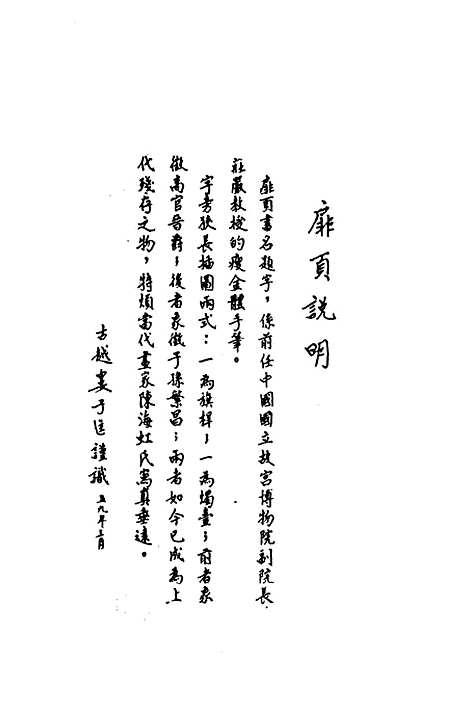 扉頁説明
扉頁書名題字，係前任中國國立故宮博物院副院長，
莊嚴教授的瘦金體手筆。
字旁狹長插圖兩式：一為旗桿；一為燭臺；前者象
徵高官晉爵；後者象徵子孫繁昌；兩者如今已成為上
代殘存之物，特煩當代畫家陳海虹氏寫真垂遠。
古越婁子匡謹識 五九年二月